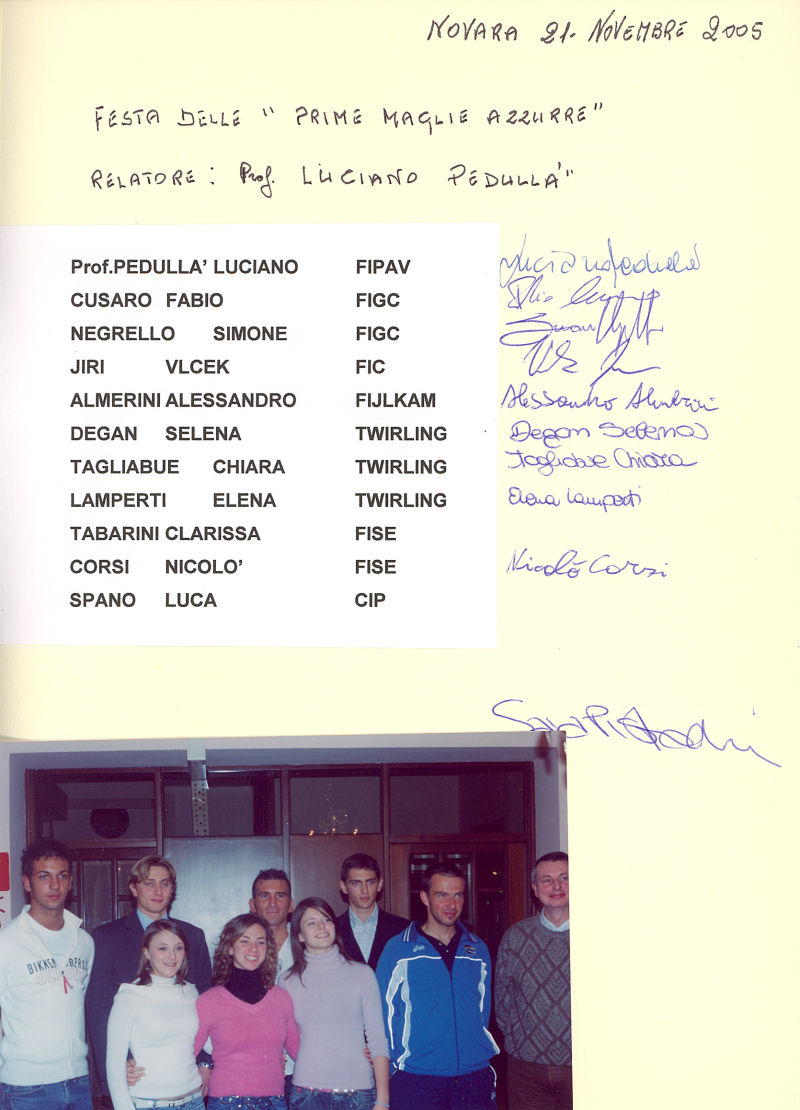 NOVARA 21. NOVEMBRE 2005
FESTA DELLE " PRIME MAGLIE AZZURRE"
RELATORE: Prof. LUCIANO PEDULLA'"
Prof.PEDULLA' LUCIANO FIPAV
CUSARO FABIO FIGC
NEGRELLO SIMONE FIGC
JIRI VLCEK FIC
ALMERINI ALESSANDRO FIJLKAM Alessandro Almerini
DEGAN SELENA TWIRLING Degan Selena
TAGLIABUE CHIARA TWIRLING Tagliabue Chiara
LAMPERTI ELENA TWIRLING Elena Lamperti
TABARINI CLARISSA FISE
CORSI NICOLO' FISE Nicolò Corsi
SPANO LUCA CIP
BIKKEMBERGS
asics